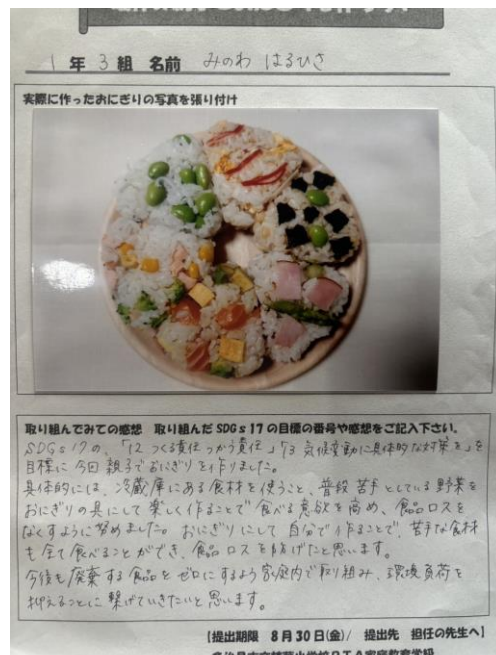 1年 3組 名前 みのわ はるひさ
実際に作ったおにぎりの写真を張り付け
取り組んでみての感想 取り組んだSDGs17の目標の番号や感想をご記入下さい。
SDGs17の、「12 つくる責任つかう責任」「13 気候変動に具体的な対策を」を
目標に今回親子でおにぎりを作りました。
具体的には、冷蔵庫にある食材を使うこと、普段苦手としている野菜を
おにぎりの具にして楽しく作ることで食べる意欲を高め、食品ロスを
なくすように努めました。おにぎりにして自分で作ることで、苦手な食材
も全て食べることができ、食品ロスを防げたと思います。
今後も廃棄する食品をゼロにするよう家庭内で取り組み、環境負荷を
抑えることに繋げていきたいと思います。
【提出期限 8月30日(金)/ 提出先 担任の先生へ】